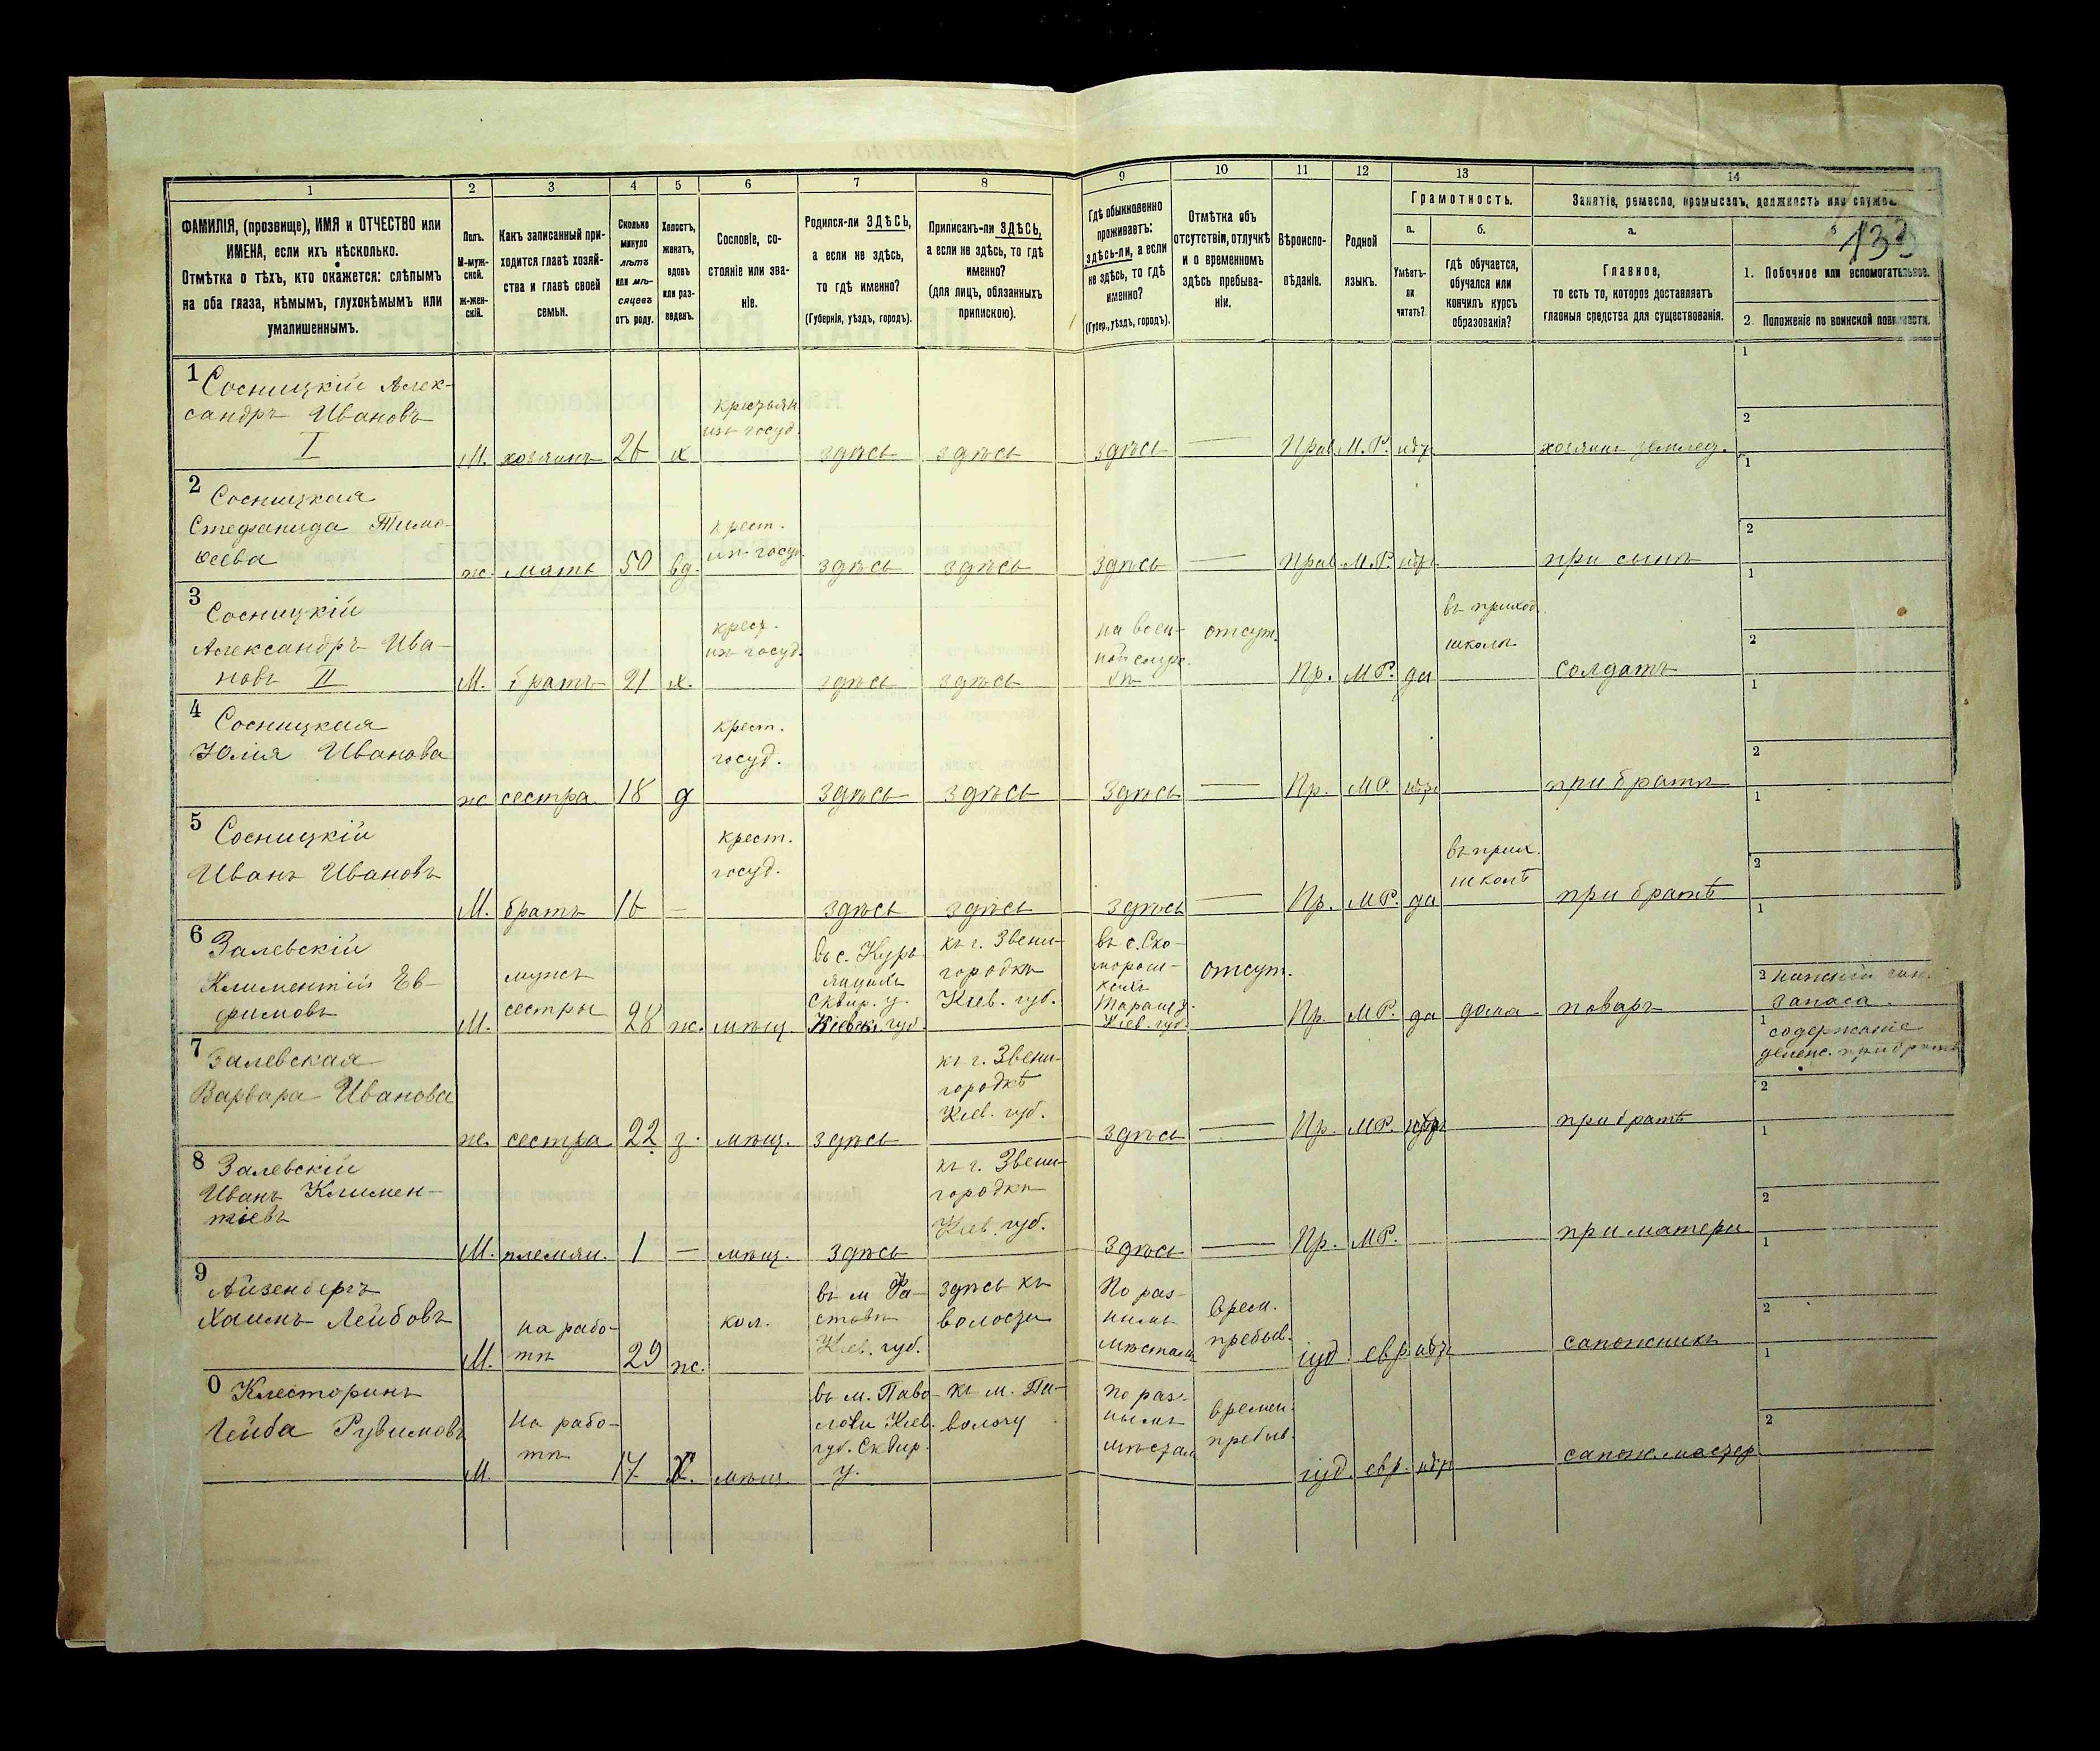 1 2 3 4 5 6 7 8 9 10 11 12 13 14
ФАМИЛІЯ, (прозвище), ИМЯ и ОТЧЕСТВО или
ИМЕНА, если ихъ нѣсколько.
Отмѣтка о тѣхъ, кто окажется: слѣпымъ
на оба глаза, нѣмымъ, глухонѣмымъ или
умалишеннымъ.
Полъ.
М-муж-
ской.
ж-жен-
скій.
Какъ записанный при-
ходится главѣ хозяй-
ства и главѣ своей
семьи.
Сколько
минуло
лѣтъ
или мѣ-
сяцевъ
отъ роду.
Холостъ,
женатъ,
вдовъ
или раз-
веденъ.
Сословіе, со-
стояніе или зва-
ніе.
Родился-ли ЗДѢСЬ,
а если не здѣсь,
то гдѣ именно?
(Губернія, уѣздъ, городъ).
Приписанъ-ли ЗДѢСЬ,
а если не здѣсь, то гдѣ
именно?
(для лицъ, обязанныхъ
припискою).
Гдѣ обыкновенно
проживаетъ:
здѣсь-ли, а если
не здѣсь, то гдѣ
именно?
(Губер., уѣздъ, городъ).
Отмѣтка объ
отсутствіи, отлучкѣ
и о временномъ
здѣсь пребыва-
ніи.
Вѣроиспо-
вѣданіе.
Родной
языкъ.
Грамотность.
а.
Умѣетъ-
ли
читать?
б.
Гдѣ обучается,
обучался или
кончилъ курсъ
образованія?
Занятіе, ремесло, промыселъ, должность или служба.
а.
Главное,
то есть то, которое доставляетъ
главныя средства для существованія.
1. Побочное или вспомогательное.
2. Положеніе по воинской повинности.
1 Сосницкій Алек-
сандръ Ивановъ
I
М. хозяинъ 26 х
крестьян.
изъ госуд.
здѣсь здѣсь здѣсь — Прав М.Р. нѣтъ хозяинъ землед.
1
2
2 Сосницкая
Стефанида Тимо-
ѳеева
ж. мать 50 вд.
крест.
изъ госуд.
здѣсь здѣсь здѣсь — Прав М.Р. нѣтъ при сынѣ
1
2
3 Сосницкій
Александръ Ива-
новъ II
М. братъ 21 х.
крест.
изъ госуд.
здѣсь здѣсь
на воен-
ной служ-
бѣ
отсут. Пр. М.Р. да
въ приход.
школѣ
солдатъ
1
2
4 Сосницкая
Юлія Иванова
ж сестра 18 д
крест.
госуд.
здѣсь здѣсь здѣсь — Пр. М.Р. нѣтъ при братѣ
1
2
5 Сосницкій
Иванъ Ивановъ
М. братъ 16 —
крест.
госуд.
здѣсь здѣсь здѣсь — Пр. М.Р. да
въ прих.
школѣ
при братѣ
1
2
6 Залевскій
Климентій Ев-
фимовъ
М.
мужъ
сестры
28 ж. мѣщ.
въ с.
Сквир. у.
Кіевск. губ.
къ г. Звени-
городкѣ
Кіев. губ.
въ с. Ско-
морош-
кахъ
Таращ.
Кіев. губ.
отсут. Пр. М.Р. да дома поваръ
1
2 нижній чинъ
запаса.
7 Залевская
Варвара Иванова
ж. сестра 22 з. мѣщ. здѣсь
къ г. Звени-
городкѣ
Кіев. губ.
здѣсь — Пр. М.Р. нѣтъ при братѣ
1 содержаніе
2
8 Залевскій
Иванъ Климен-
тіевъ
М. племян. 1 — мѣщ. здѣсь
къ г. Звени-
городкѣ
Кіев. губ.
здѣсь — Пр. М.Р. при матери
1
2
9 Айзенбергъ
Хаимъ Лейбовъ
М.
на рабо-
тѣ
29 ж. кол.
въ м Фа-
стовѣ
Кіев. губ.
здѣсь къ
волости
По раз-
нымъ
мѣстамъ
врем.
пребыв.
іуд. евр. нѣтъ сапожникъ
1
2
0 Клесторинъ
Лейба Рувимовъ
М.
на рабо-
тѣ
17 Х. мѣщ.
въ м. Паво-
лочи Кіев.
губ. Сквир.
у.
къ м. Па-
волочу
По раз-
нымъ
мѣстам
времен.
пребыв.
іуд. евр. нѣтъ сапож. мастер
2